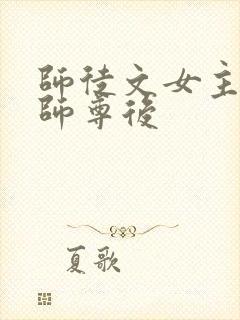 師徒文女主
師尊後
夏歌